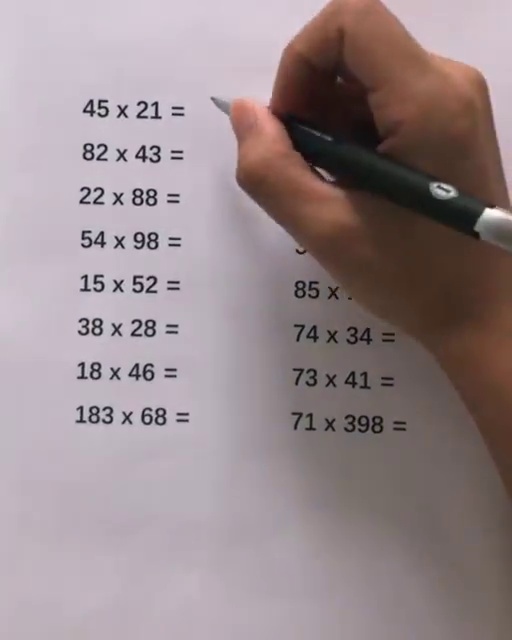 45 x 21 =
82 x 43 =
22 x 88 =
54 x 98 =
15 x 52 =
38 x 28 =
18 x 46 =
183 x 68 =
85 x
74 x 34 =
73 x 41 =
71 x 398 =